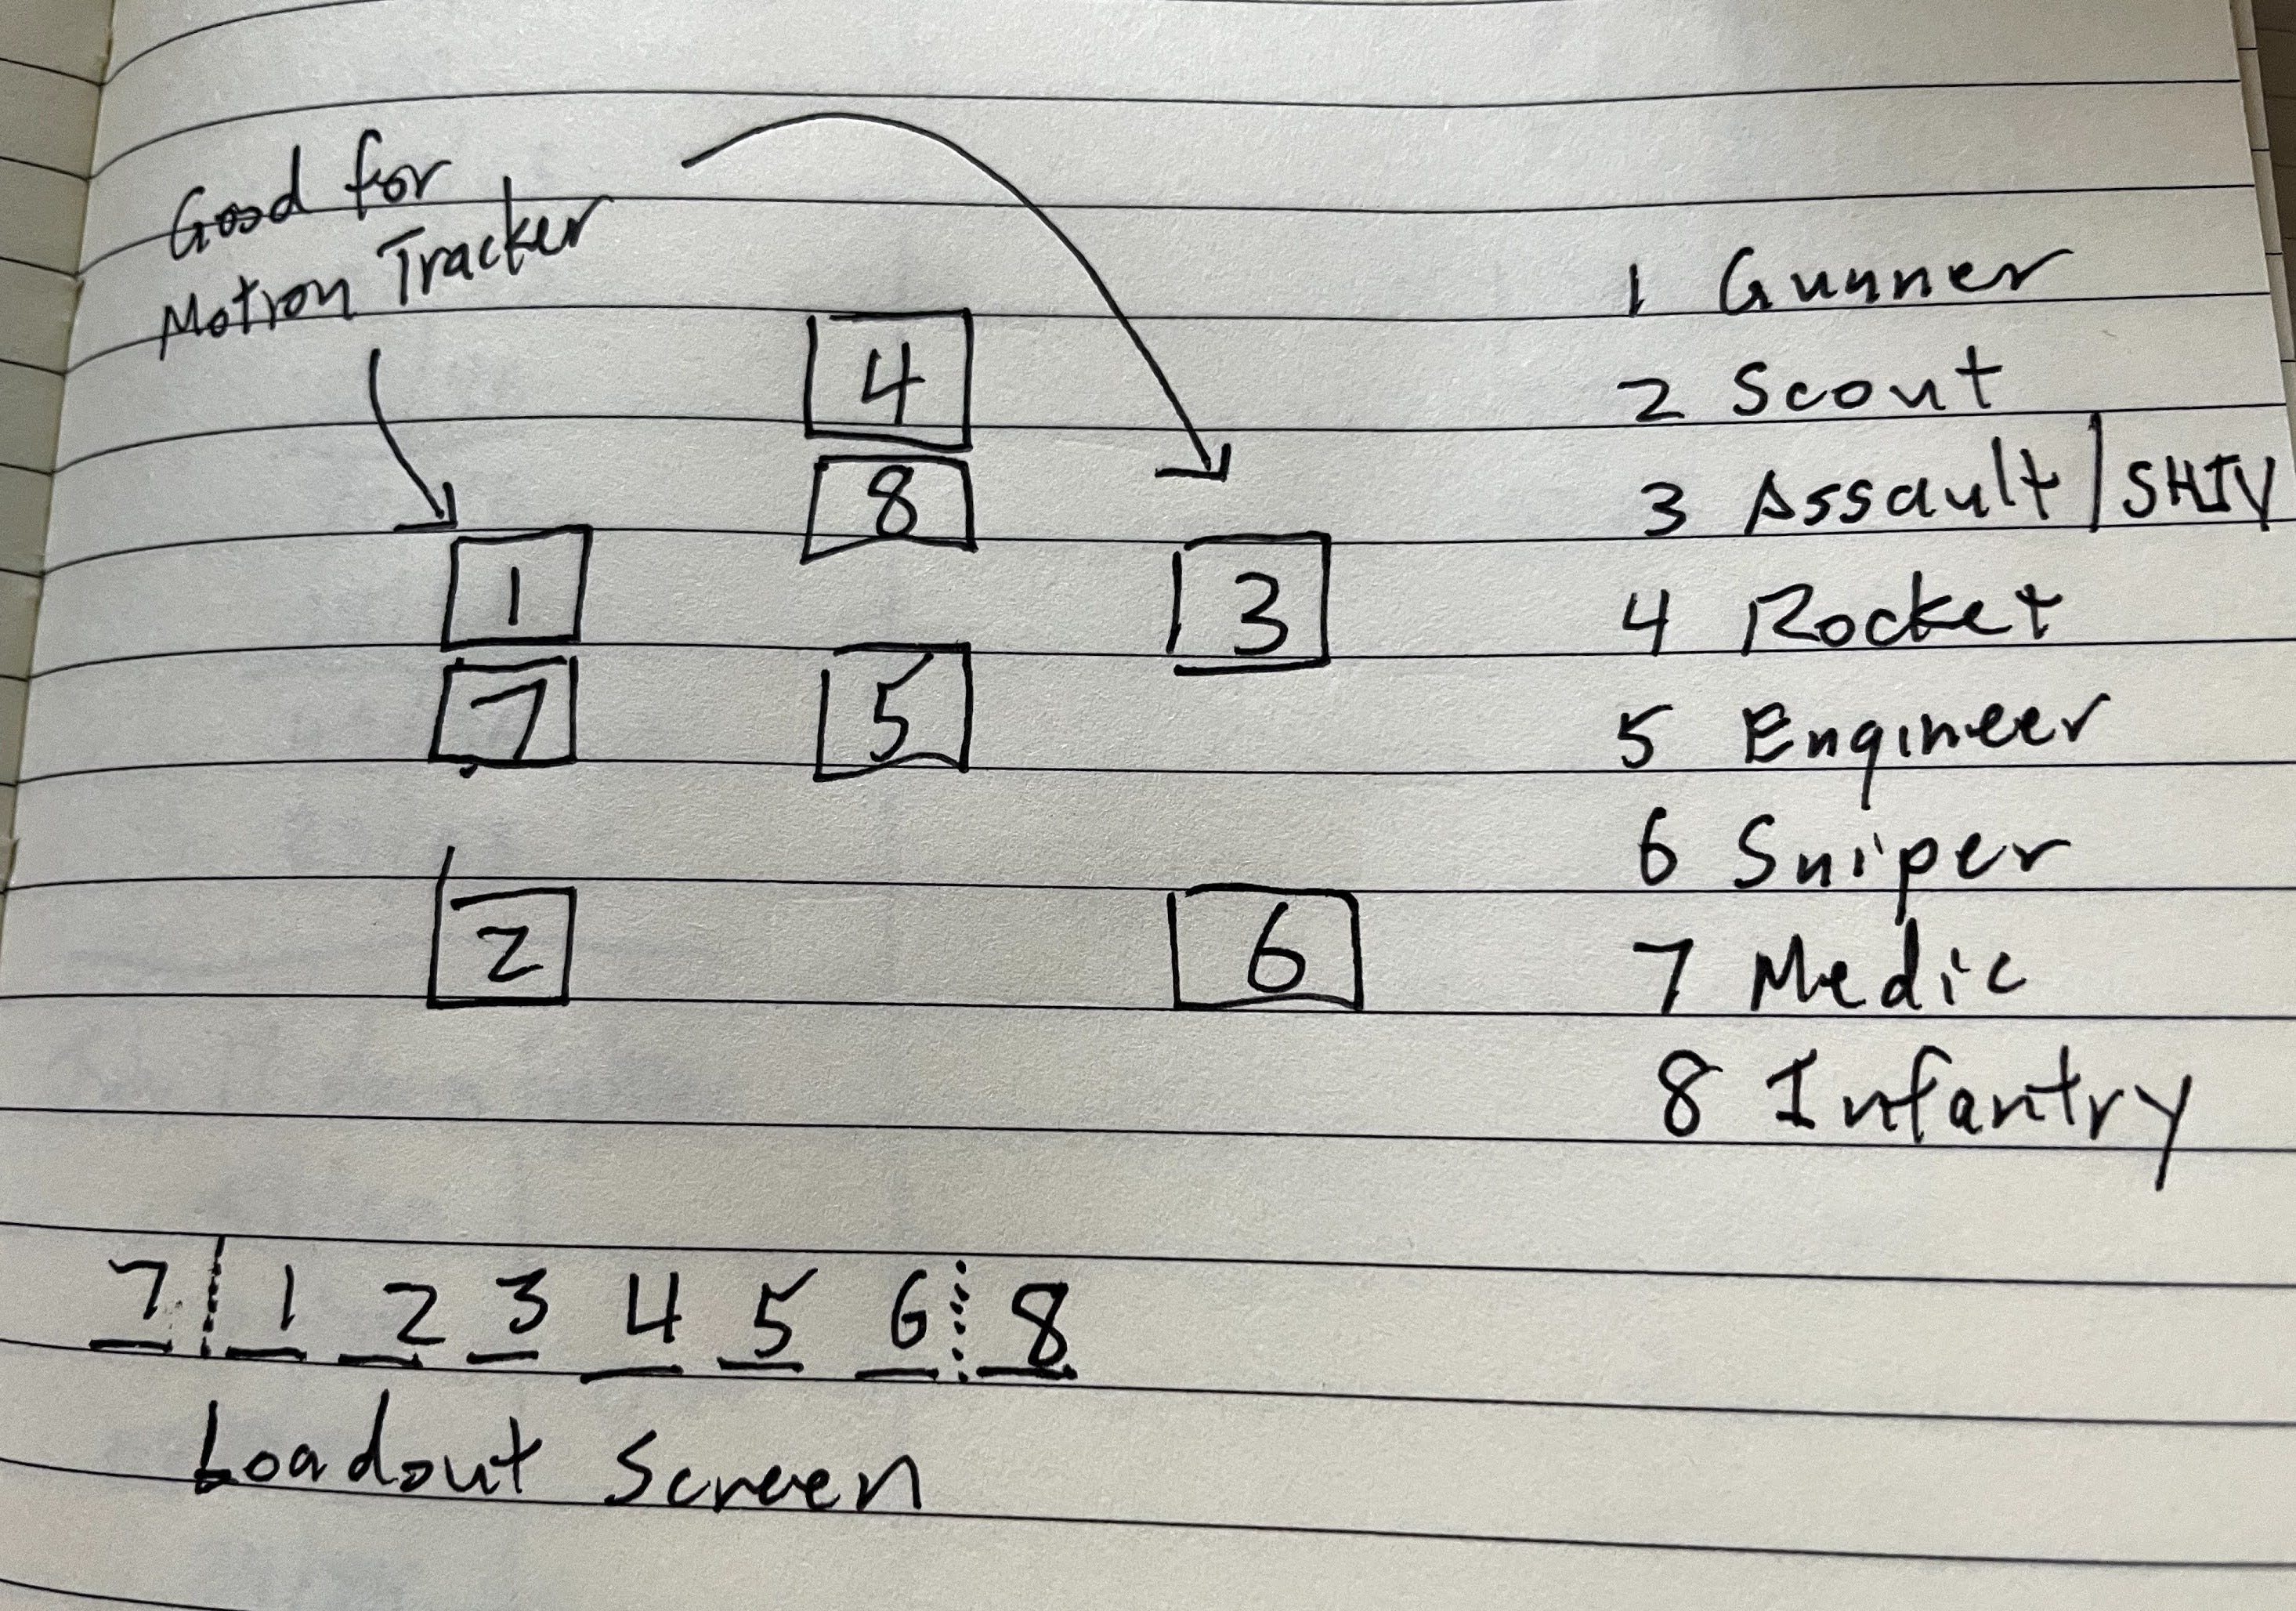 Good for
Motion Tracker
4
8
1
3
7
5
2
6
1 Gunner
2 Scout
3 Assault/SHIV
4 Rocket
5 Engineer
6 Sniper
7 Medic
8 Infantry
7 | 1 2 3 4 5 6 ⋮ 8
Loadout Screen